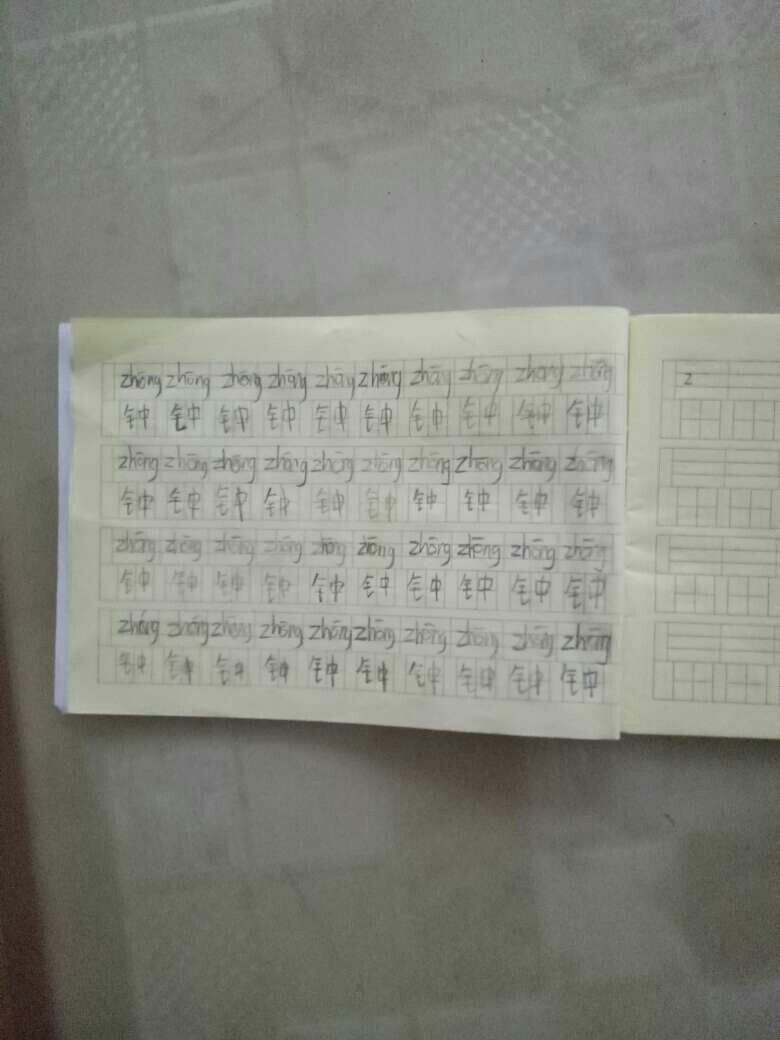 zhōng zhōng zhōng zhōng zhōng zhōng zhōng zhōng zhōng zhōng
钟 钟 钟 钟 钟 钟 钟 钟 钟 钟
zhōng zhōng zhōng zhōng zhōng zhōng zhōng zhōng zhōng zhōng
钟 钟 钟 钟 钟 钟 钟 钟 钟 钟
zhōng zhōng zhōng zhōng zhōng zhōng zhōng zhōng zhōng zhōng
钟 钟 钟 钟 钟 钟 钟 钟 钟 钟
zhōng zhōng zhōng zhōng zhōng zhōng zhōng zhōng zhōng zhōng
钟 钟 钟 钟 钟 钟 钟 钟 钟 钟
z